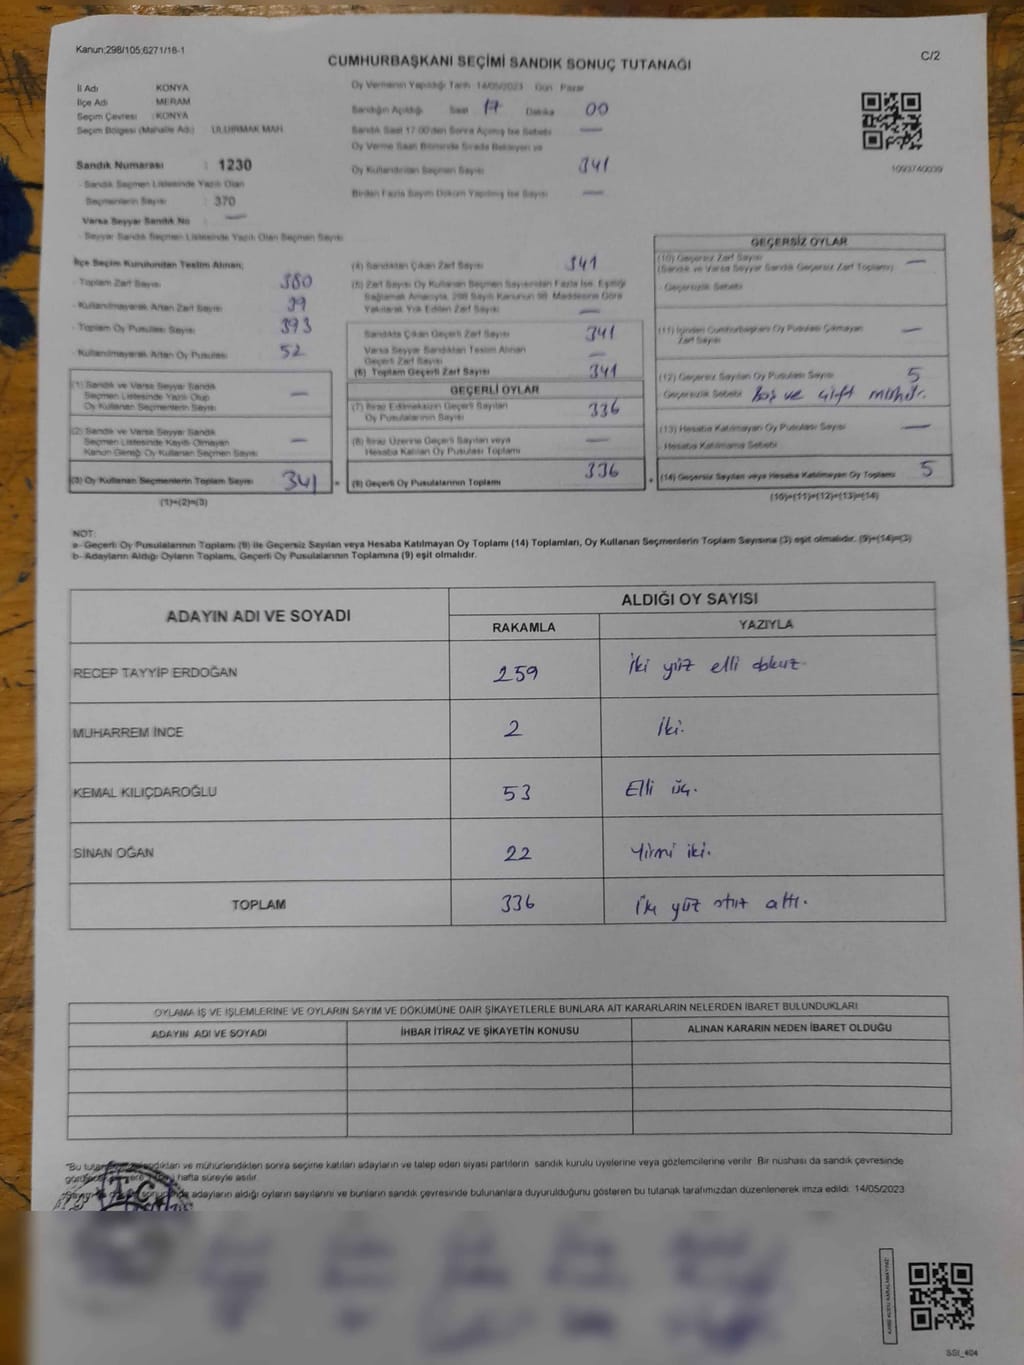 Kanun;298/105;6271/16-1
C/2
CUMHURBAŞKANI SEÇİMİ SANDIK SONUÇ TUTANAĞI
İl Adı KONYA
İlçe Adı MERAM
Seçim Çevresi : KONYA
Seçim Bölgesi (Mahalle Adı) ULUIRMAK MAH
Sandık Numarası : 1230
- Sandık Seçmen Listesinde Yazılı Olan
Seçmenlerin Sayısı : 370
Varsa Seyyar Sandık No : —
- Seyyar Sandık Seçmen Listesinde Yazılı Olan Seçmen Sayısı
Oy Vermenin Yapıldığı Tarih 14/05/2023 Gün Pazar
Sandığın Açıldığı Saat 17 Dakika 00
Sandık Saat 17.00'den Sonra Açılmış İse Sebebi —
Oy Verme Saati Bitiminde Sırada Bekleyen ve
Oy Kullandırılan Seçmen Sayısı 341
Birden Fazla Sayım Döküm Yapılmış İse Sayısı —
1093740039
İlçe Seçim Kurulundan Teslim Alınan;
- Toplam Zarf Sayısı 380
- Kullanılmayarak Artan Zarf Sayısı 39
- Toplam Oy Pusulası Sayısı 393
- Kullanılmayarak Artan Oy Pusulası 52
(1) Sandık ve Varsa Seyyar Sandık
Seçmen Listesinde Yazılı Olup
Oy Kullanan Seçmenlerin Sayısı —
(2) Sandık ve Varsa Seyyar Sandık
Seçmen Listesinde Kayıtlı Olmayan
Kanun Gereği Oy Kullanan Seçmen Sayısı —
(3) Oy Kullanan Seçmenlerin Toplam Sayısı 341
(1)+(2)=(3)
(4) Sandıktan Çıkan Zarf Sayısı 341
(5) Zarf Sayısı Oy Kullanan Seçmen Sayısından Fazla İse, Eşitliği
Sağlamak Amacıyla, 298 Sayılı Kanunun 98. Maddesine Göre
Yakılarak Yok Edilen Zarf Sayısı —
Sandıkta Çıkan Geçerli Zarf Sayısı 341
Varsa Seyyar Sandıktan Teslim Alınan
Geçerli Zarf Sayısı —
(6) Toplam Geçerli Zarf Sayısı 341
GEÇERLİ OYLAR
(7) İtiraz Edilmeksizin Geçerli Sayılan
Oy Pusulalarının Sayısı 336
(8) İtiraz Üzerine Geçerli Sayılan veya
Hesaba Katılan Oy Pusulası Toplamı —
(9) Geçerli Oy Pusulalarının Toplamı 336
GEÇERSİZ OYLAR
(10) Geçersiz Zarf Sayısı —
(Sandık ve Varsa Seyyar Sandık Geçersiz Zarf Toplamı)
- Geçersizlik Sebebi
(11) İçinden Cumhurbaşkanı Oy Pusulası Çıkmayan
Zarf Sayısı —
(12) Geçersiz Sayılan Oy Pusulası Sayısı 5
Geçersizlik Sebebi Boş ve çift mühür.
(13) Hesaba Katılmayan Oy Pusulası Sayısı —
Hesaba Katılmama Sebebi
(14) Geçersiz Sayılan veya Hesaba Katılmayan Oy Toplamı 5
(10)+(11)+(12)+(13)=(14)
NOT:
a- Geçerli Oy Pusulalarının Toplamı (9) ile Geçersiz Sayılan veya Hesaba Katılmayan Oy Toplamı (14) Toplamları, Oy Kullanan Seçmenlerin Toplam Sayısına (3) eşit olmalıdır. (9)+(14)=(3)
b- Adayların Aldığı Oyların Toplamı, Geçerli Oy Pusulalarının Toplamına (9) eşit olmalıdır.
ADAYIN ADI VE SOYADI ALDIĞI OY SAYISI
RAKAMLA YAZIYLA
RECEP TAYYİP ERDOĞAN 259 İki yüz elli dokuz
MUHARREM İNCE 2 İki.
KEMAL KILIÇDAROĞLU 53 Elli üç.
SİNAN OĞAN 22 Yirmi iki.
TOPLAM 336 İki yüz otuz altı.
OYLAMA İŞ VE İŞLEMLERİNE VE OYLARIN SAYIM VE DÖKÜMÜNE DAİR ŞİKAYETLERLE BUNLARA AİT KARARLARIN NELERDEN İBARET BULUNDUKLARI
ADAYIN ADI VE SOYADI İHBAR İTİRAZ VE ŞİKAYETİN KONUSU ALINAN KARARIN NEDEN İBARET OLDUĞU
"Bu ve mühürlendikten sonra seçime katılan adayların ve talep eden siyasi partilerin sandık kurulu üyelerine veya gözlemcilerine verilir. Bir nüshası da sandık çevresinde
hafta süreyle asılır.
adayların aldığı oyların sayılarını ve bunların sandık çevresinde bulunanlara duyurulduğunu gösteren bu tutanak tarafımızdan düzenlenerek imza edildi. 14/05/2023
T.C.
SSI_404